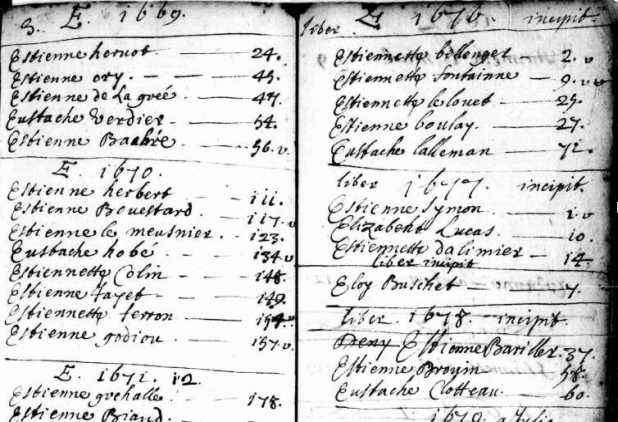 3. E. 1669.
Estienne heruot — 24.
Estienne ory. — 45.
Estienne de La greé — 47.
Eustache Verdier — 54.
Estienne Baabré — 56. v
E. 1670.
Estienne herbert — 111.
Estienne Bouestard — 117. v
Estienne le meusnier — 123.
Eustache hobé — 134 v
Estiennette Colin — 148.
Estienne Fayet — 149.
Estiennette ferron — 154. v
Estienne godiou — 157. v
E. 1671. 12
Estienne grehalle — 178.
Estienne Briand.
liber E 1676. incipit.
Estiennette bellenget — 2. v
Estiennette fontainne — 9.
Estiennette le louet — 25.
Estienne boulay. — 27.
Eustache lalleman — 71.
liber 1677. incipit.
Estienne Symon — 1. v
Elizabeht Lucas. — 10.
Estiennette dalimier — 14.
liber incipit
Eloy Buschet — 7.
liber. 1678. incipit.
Estienne Bariller. 37.
Estienne Broyin — 58.
Eustache Clotteau — 60.
1679. a Julio